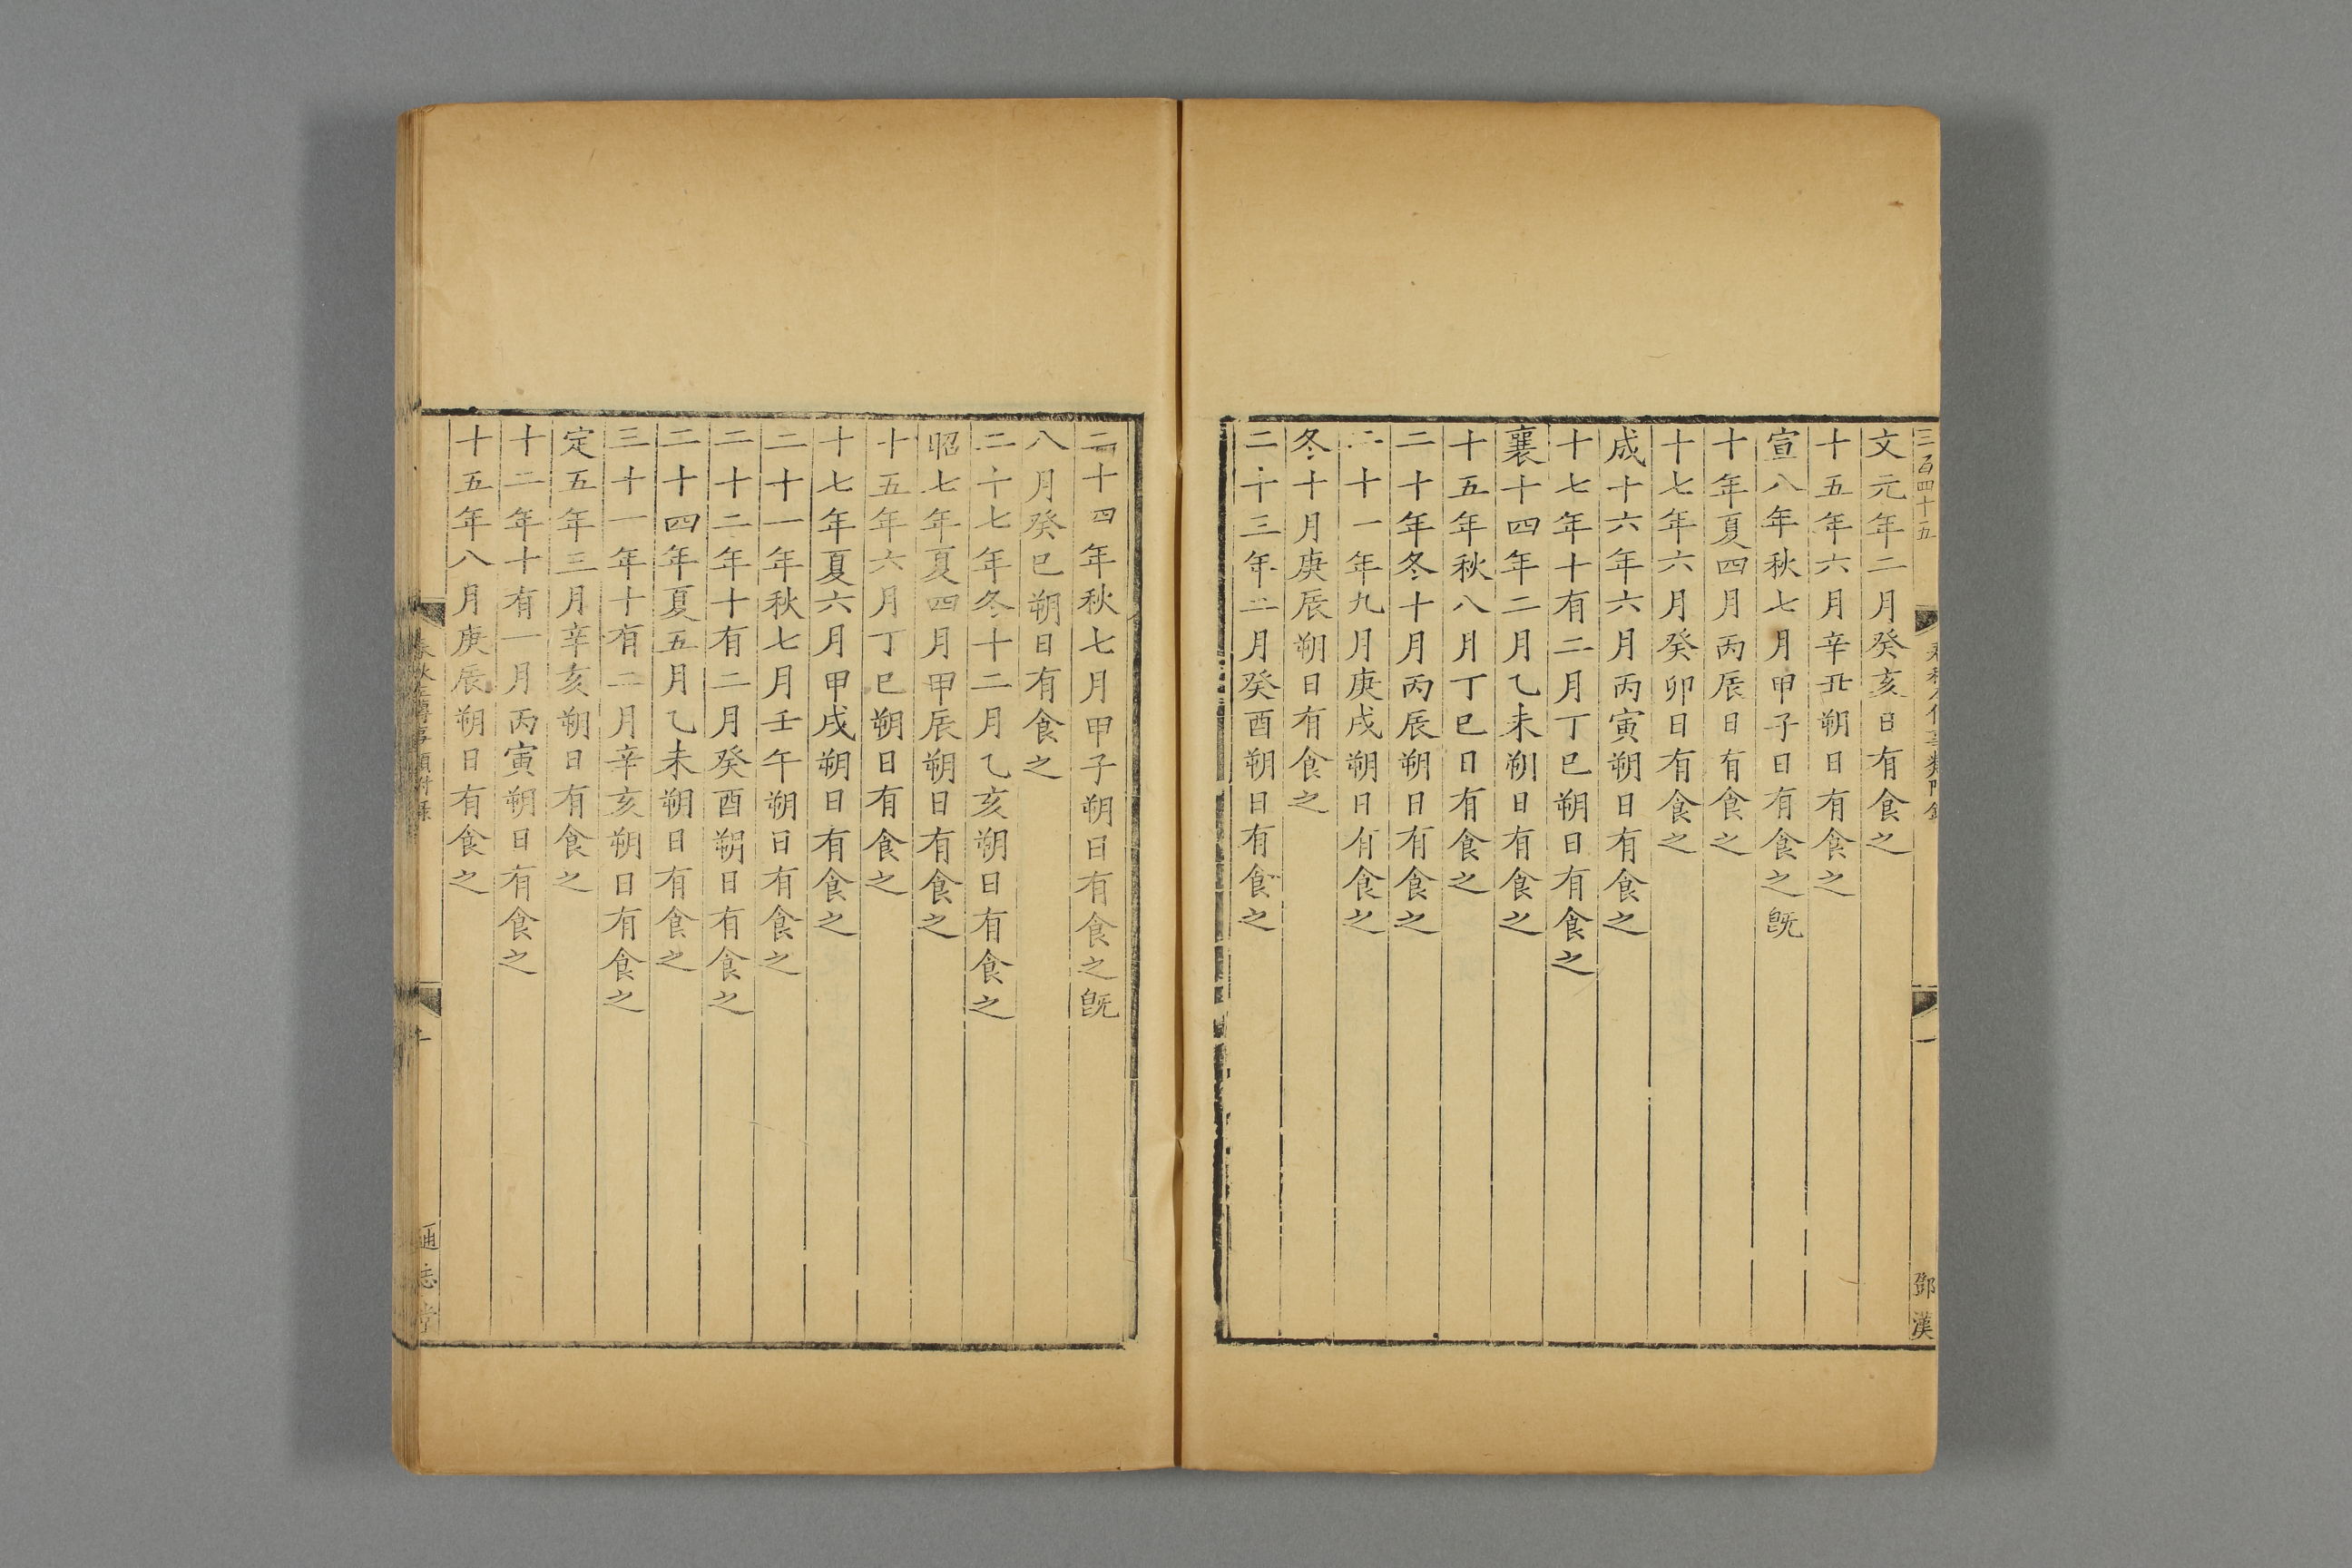 三百四十五
鄧漢
文元年二月癸亥日有食之
十五年六月辛丑朔日有食之
宣八年秋七月甲子日有食之旣
十年夏四月丙辰日有食之
十七年六月癸卯日有食之
成十六年六月丙寅朔日有食之
十七年十有二月丁巳朔日有食之
襄十四年二月乙未朔日有食之
十五年秋八月丁巳日有食之
二十年冬十月丙辰朔日有食之
二十一年九月庚戌朔日有食之
冬十月庚辰朔日有食之
二十三年二月癸酉朔日有食之
二十四年秋七月甲子朔日有食之旣
八月癸巳朔日有食之
二十七年冬十二月乙亥朔日有食之
昭七年夏四月甲辰朔日有食之
十五年六月丁巳朔日有食之
十七年夏六月甲戌朔日有食之
二十一年秋七月壬午朔日有食之
二十二年十有二月癸酉朔日有食之
二十四年夏五月乙未朔日有食之
三十一年十有二月辛亥朔日有食之
定五年三月辛亥朔日有食之
十二年十有一月丙寅朔日有食之
十五年八月庚辰朔日有食之
通志堂